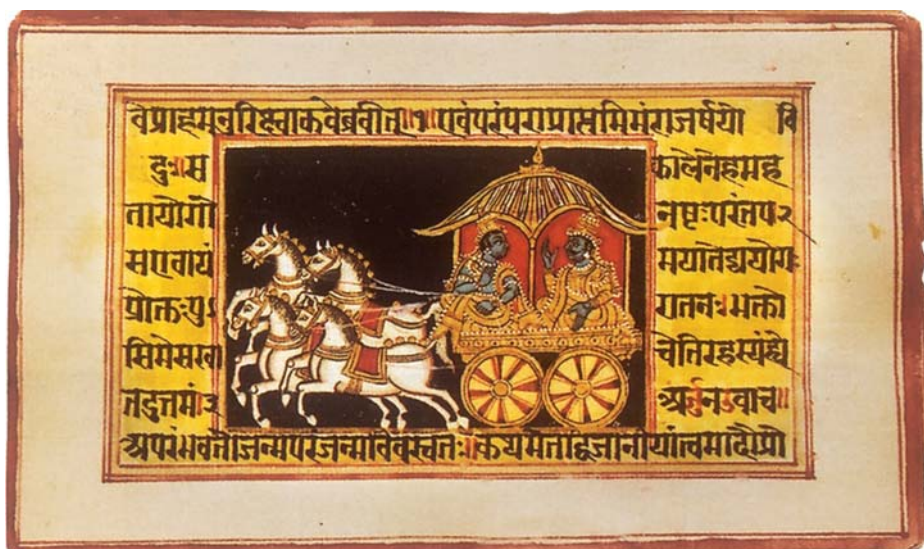 वेप्राहमनुरिक्ष्वाकवेब्रवीत्॥१॥एवंपरंपराप्राप्तमिमंराजर्षयो वि
दुः॥स कालेनेहमह
तायोगो नष्टःपरंतप२
सएवायं मयातेद्ययोगः
प्रोक्तःपुऽ रातनः॥भक्तो
सिमेसखा चेतिरहस्यंह्ये
तदुत्तमं३ अर्जुनउवाच॥
अपरंभवतोजन्मपरंजन्मविवस्वतः॥कथमेताद्वजानीयांत्वमादौप्रो